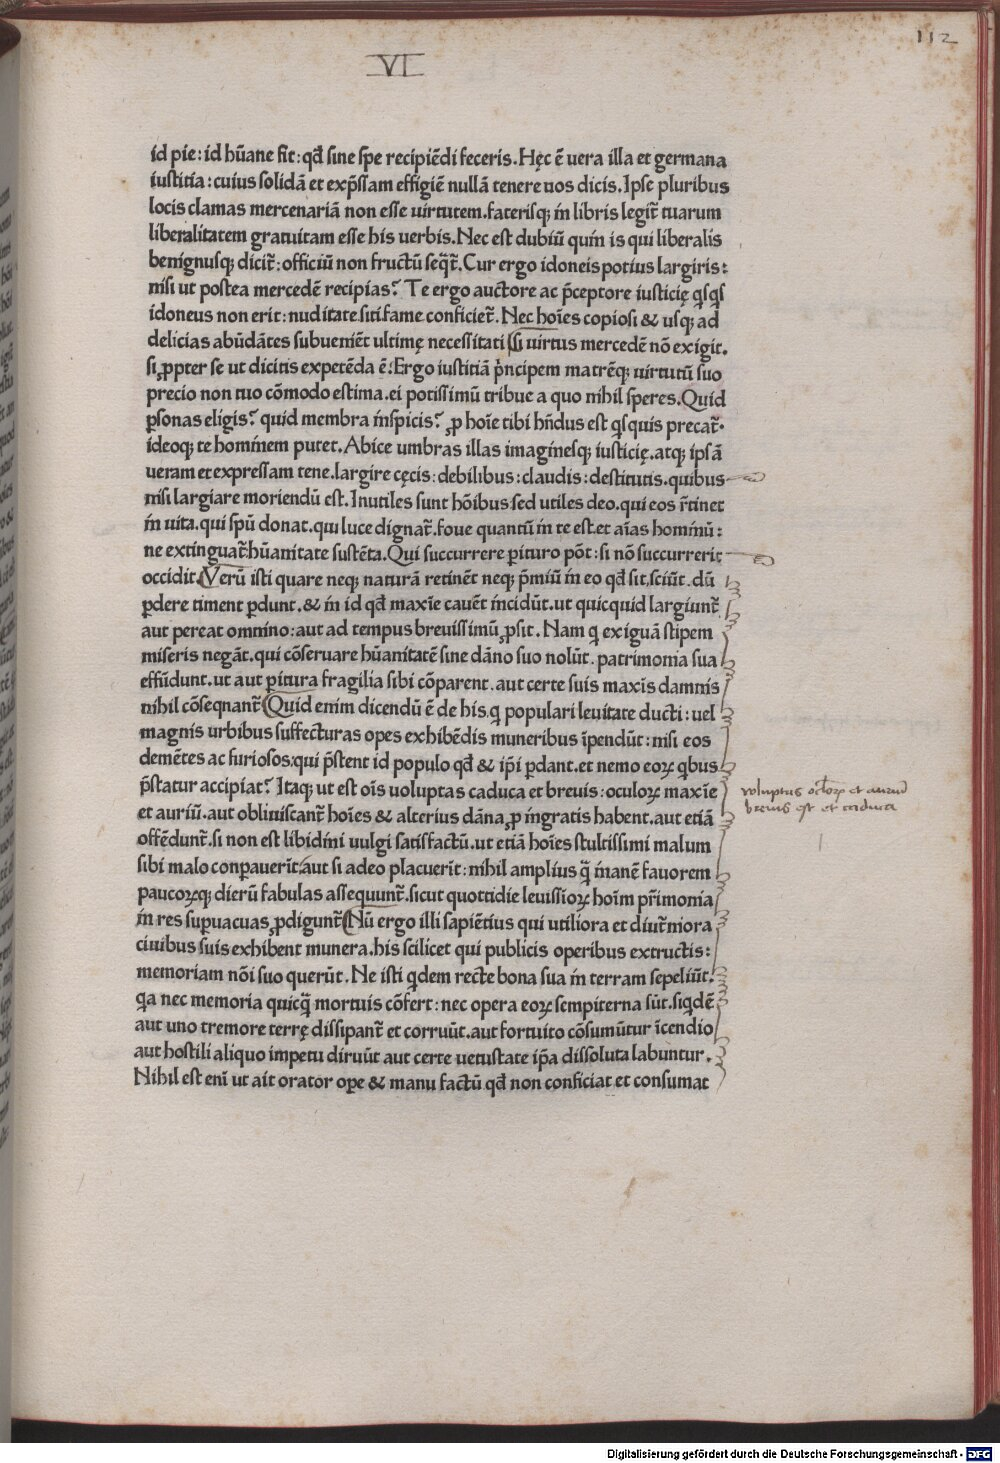 112
VI
id pie: id hūane fit: qđ sine spe recipiēdi feceris. Hęc ē uera illa et germana
iustitia: cuius solidā et exp̄ssam effigiē nullā tenere uos dicis. Ipse pluribus
locis clamas mercenariā non esse uirtutem. faterisq; in libris legit̃ tuarum
liberalitatem gratuitam esse his uerbis. Nec est dubiū quin is qui liberalis
benignusq; dicit̃: officiū non fructū seq̃t̃. Cur ergo idoneis potius largiris:
nisi ut postea mercedē recipias? Te ergo auctore ac p̄ceptore iusticię q̃sq̃s
idoneus non erit: nuditate siti fame conficiet̃. Nec hoīes copiosi & usq; ad
delicias abūdātes subueniēt ultimę necessitati (si uirtus mercedē nō exigit.
si ꝓpter se ut dicitis expetēda ē: Ergo iustitiā p̄ncipem matrēq; uirtutū suo
precio non tuo cōmodo estima. ei potissimū tribue a quo nihil speres. Quid
ꝑsonas eligis? quid membra inspicis? ꝓ hoīe tibi hn̄dus est q̃squis precat̃.
ideoq; te hominem putet. Abice umbras illas imaginesq; iusticię. atq; ipsā
ueram et expressam tene. largire cęcis: debilibus: claudis: destitutis. quibus
nisi largiare moriendū est. Inutiles sunt hōibus sed utiles deo. qui eos r̄tinet
in uita. qui spū donat. qui luce dignat̃. foue quantū in te est. et aīas hominū:
ne extinguat̃: hūanitate sustēta. Qui succurrere ꝑituro pōt: si nō succurrerit
occidit. (Verū isti quare neq; naturā retinēt neq; p̄miū in eo qđ sit, sciūt. dū
ꝑdere timent ꝑdunt. & in id qđ maxīe cauēt incidūt. ut quicquid largiunt̃
aut pereat omnino: aut ad tempus breuissimū ꝓsit. Nam q̃ exiguā stipem
miseris negāt. qui cōseruare hūanitatē sine dāno suo nolūt. patrimonia sua
effūdunt. ut aut ꝑitura fragilia sibi cōparent. aut certe suis maxīs damnis
nihil cōseqnant̃ (Quid enim dicendū ē de his. q̃ populari leuitate ducti: uel
magnis urbibus suffecturas opes exhibēdis muneribus īpendūt: nisi eos
demētes ac furiosos: qui p̄stent id populo qđ & ip̄i ꝑdant. et nemo eoꝝ qbus
p̄statur accipiat? Itaq; ut est oīs uoluptas caduca et breuis: oculoꝝ maxīe
et auriū. aut obliuiscant̃ hoīes & alterius dāna ꝓ ingratis habent. aut etiā
offēdunt̃. si non est libidini uulgi satisfactū. ut etiā hoīes stultissimi malum
sibi malo conpauerīt: aut si adeo placuerīt: nihil amplius q̃ inanē fauorem
paucoꝝq; dierū fabulas assequunt̃. sicut quottidie leuissioꝝ hoīm pr̄imonia
in res suꝑuacuas ꝓdigunt̃ (Nū ergo illi sapiētius qui utiliora et diut̃niora
ciuibus suis exhibent munera. his scilicet qui publicis operibus extructis:
memoriam nōi suo querūt. Ne isti q̃dem recte bona sua in terram sepeliūt.
q̃a nec memoria quicq̃ mortuis cōfert: nec opera eoꝝ sempiterna sūt. siq̃dē
aut uno tremore terrę dissipant̃ et corruūt. aut fortuito cōsumūtur īcendio
aut hostili aliquo impetu diruūt aut certe uetustate ip̄a dissoluta labuntur.
Nihil est enī ut ait orator oꝑe & manu factū qđ non conficiat et consumat
voluptas oc̄loꝝ et auriū
breuis est et caduca
Digitalisierung gefördert durch die Deutsche Forschungsgemeinschaft - DFG